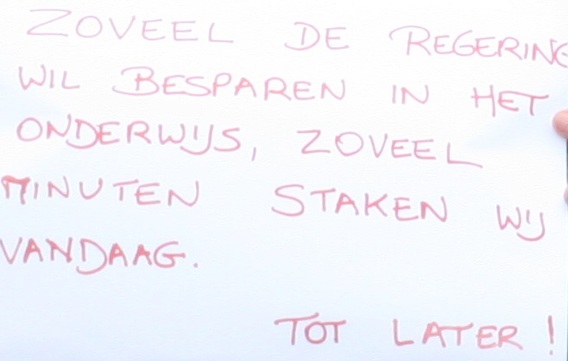 ZOVEEL DE REGERING
WIL BESPAREN IN HET
ONDERWIJS, ZOVEEL
MINUTEN STAKEN WIJ
VANDAAG.
TOT LATER!